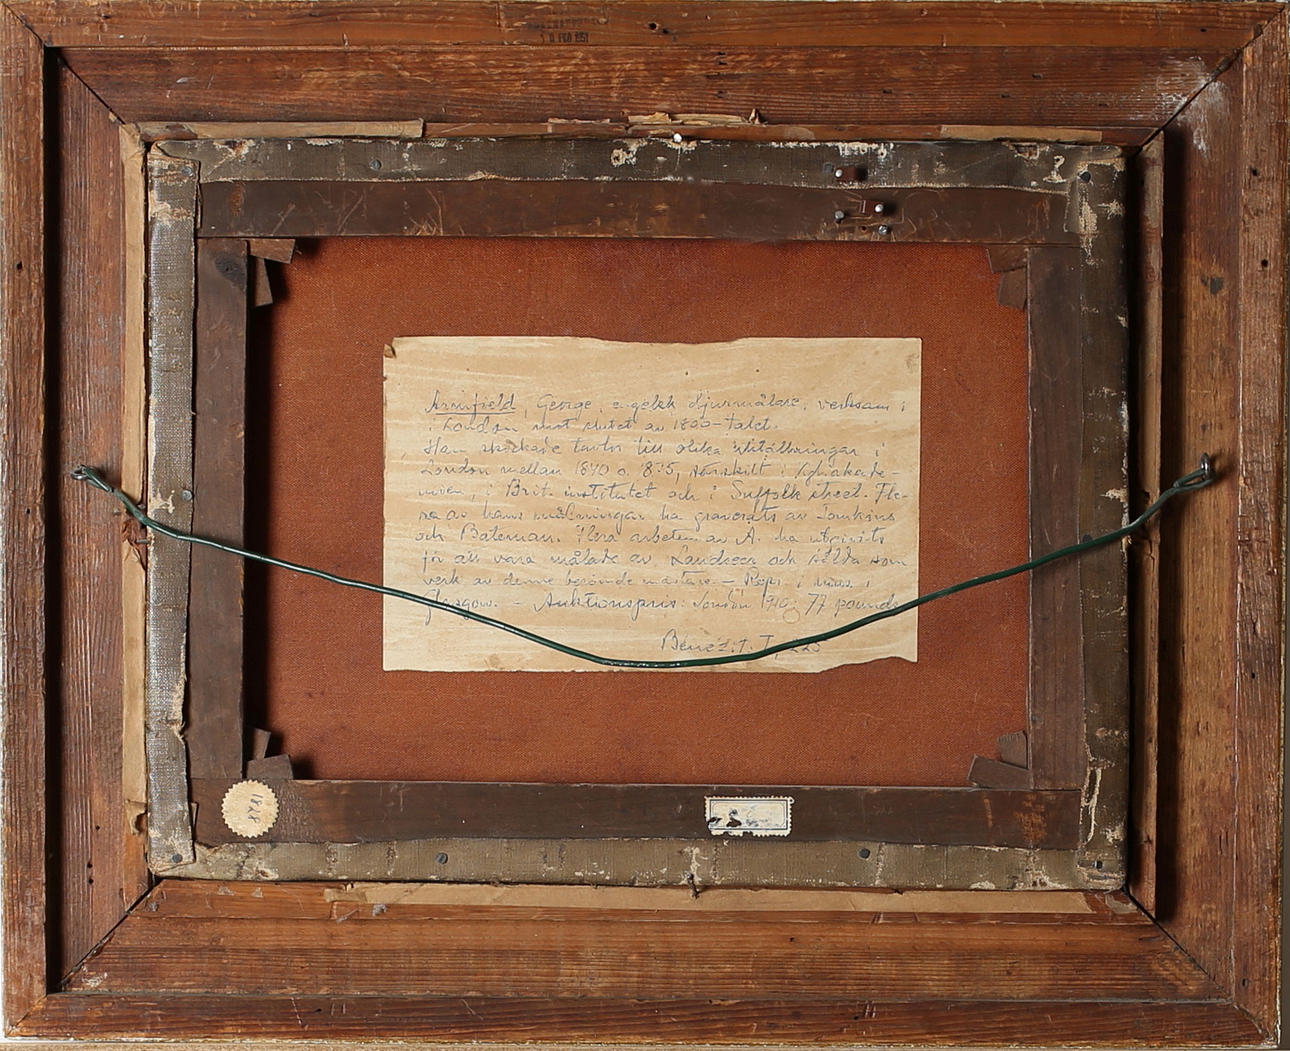 10 FEB 1951
Armfield, George, engelsk djurmålare, verksam i
i London mot slutet av 1800-talet.
Han skickade tavlor till olika utställningar i
London mellan 1840 o. 1875, särskilt i Kgl. akade-
mien, i Brit. institutet och i Suffolk street. Fle-
ra av hans målningar ha graverats av Tomkins
och Bateman. Flera arbeten av A. ha utgivits
för att vara målade av Landseer och sålda som
verk av denne berömde mästare. – Repr. i mus. i
Glasgow. – Auktionspris: London 1910: 77 pounds
Bénézit. I, 225